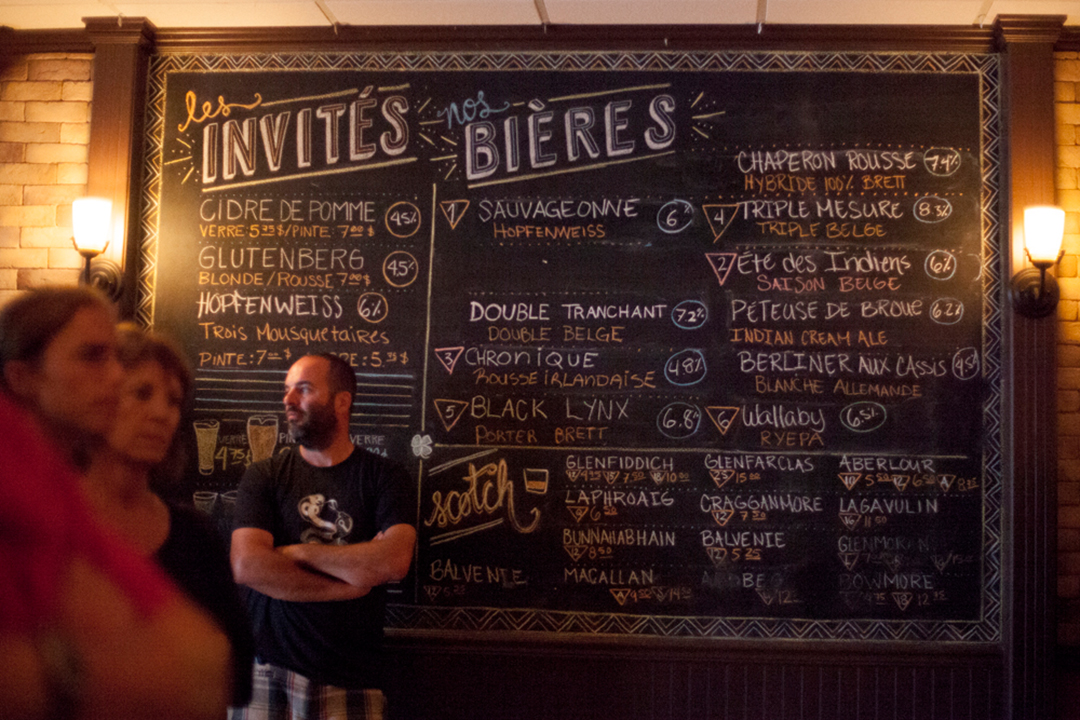 les
INVITÉS
CIDRE DE POMME 4.5%
VERRE: 5 25 $/PINTE: 7 00 $
GLUTENBERG 4.5%
BLONDE/ROUSSE 7 00 $
HOPFENWEISS 6%
Trois Mousquetaires
PINTE: 7
VERRE
4 75
VERRE
nos
BIÈRES
1 SAUVAGEONNE 6%
HOPFENWEISS
DOUBLE TRANCHANT 7.2%
DOUBLE BELGE
3 CHRONIQUE 4.8%
ROUSSE IRLANDAISE
5 BLACK LYNX 6.8%
PORTER BRETT
CHAPERON ROUSSE 7.4%
HYBRIDE 100% BRETT
4 TRIPLE MESURE 8.3%
TRIPLE BELGE
2 Été des Indiens 6%
SAISON BELGE
PÉTEUSE DE BROUE 6.2%
INDIAN CREAM ALE
BERLINER AUX CASSIS
BLANCHE ALLEMANDE
6 Wallaby 6.5%
RYEPA
scotch
BALVENIE
GLENFIDDICH
LAPHROAIG
BUNNAHABHAIN
12 8 50
MACALLAN
GLENFARCLAS
CRAGGANMORE
12 7
BALVENIE
12 5 25
ABERLOUR
LAGAVULIN
16 11
BOWMORE